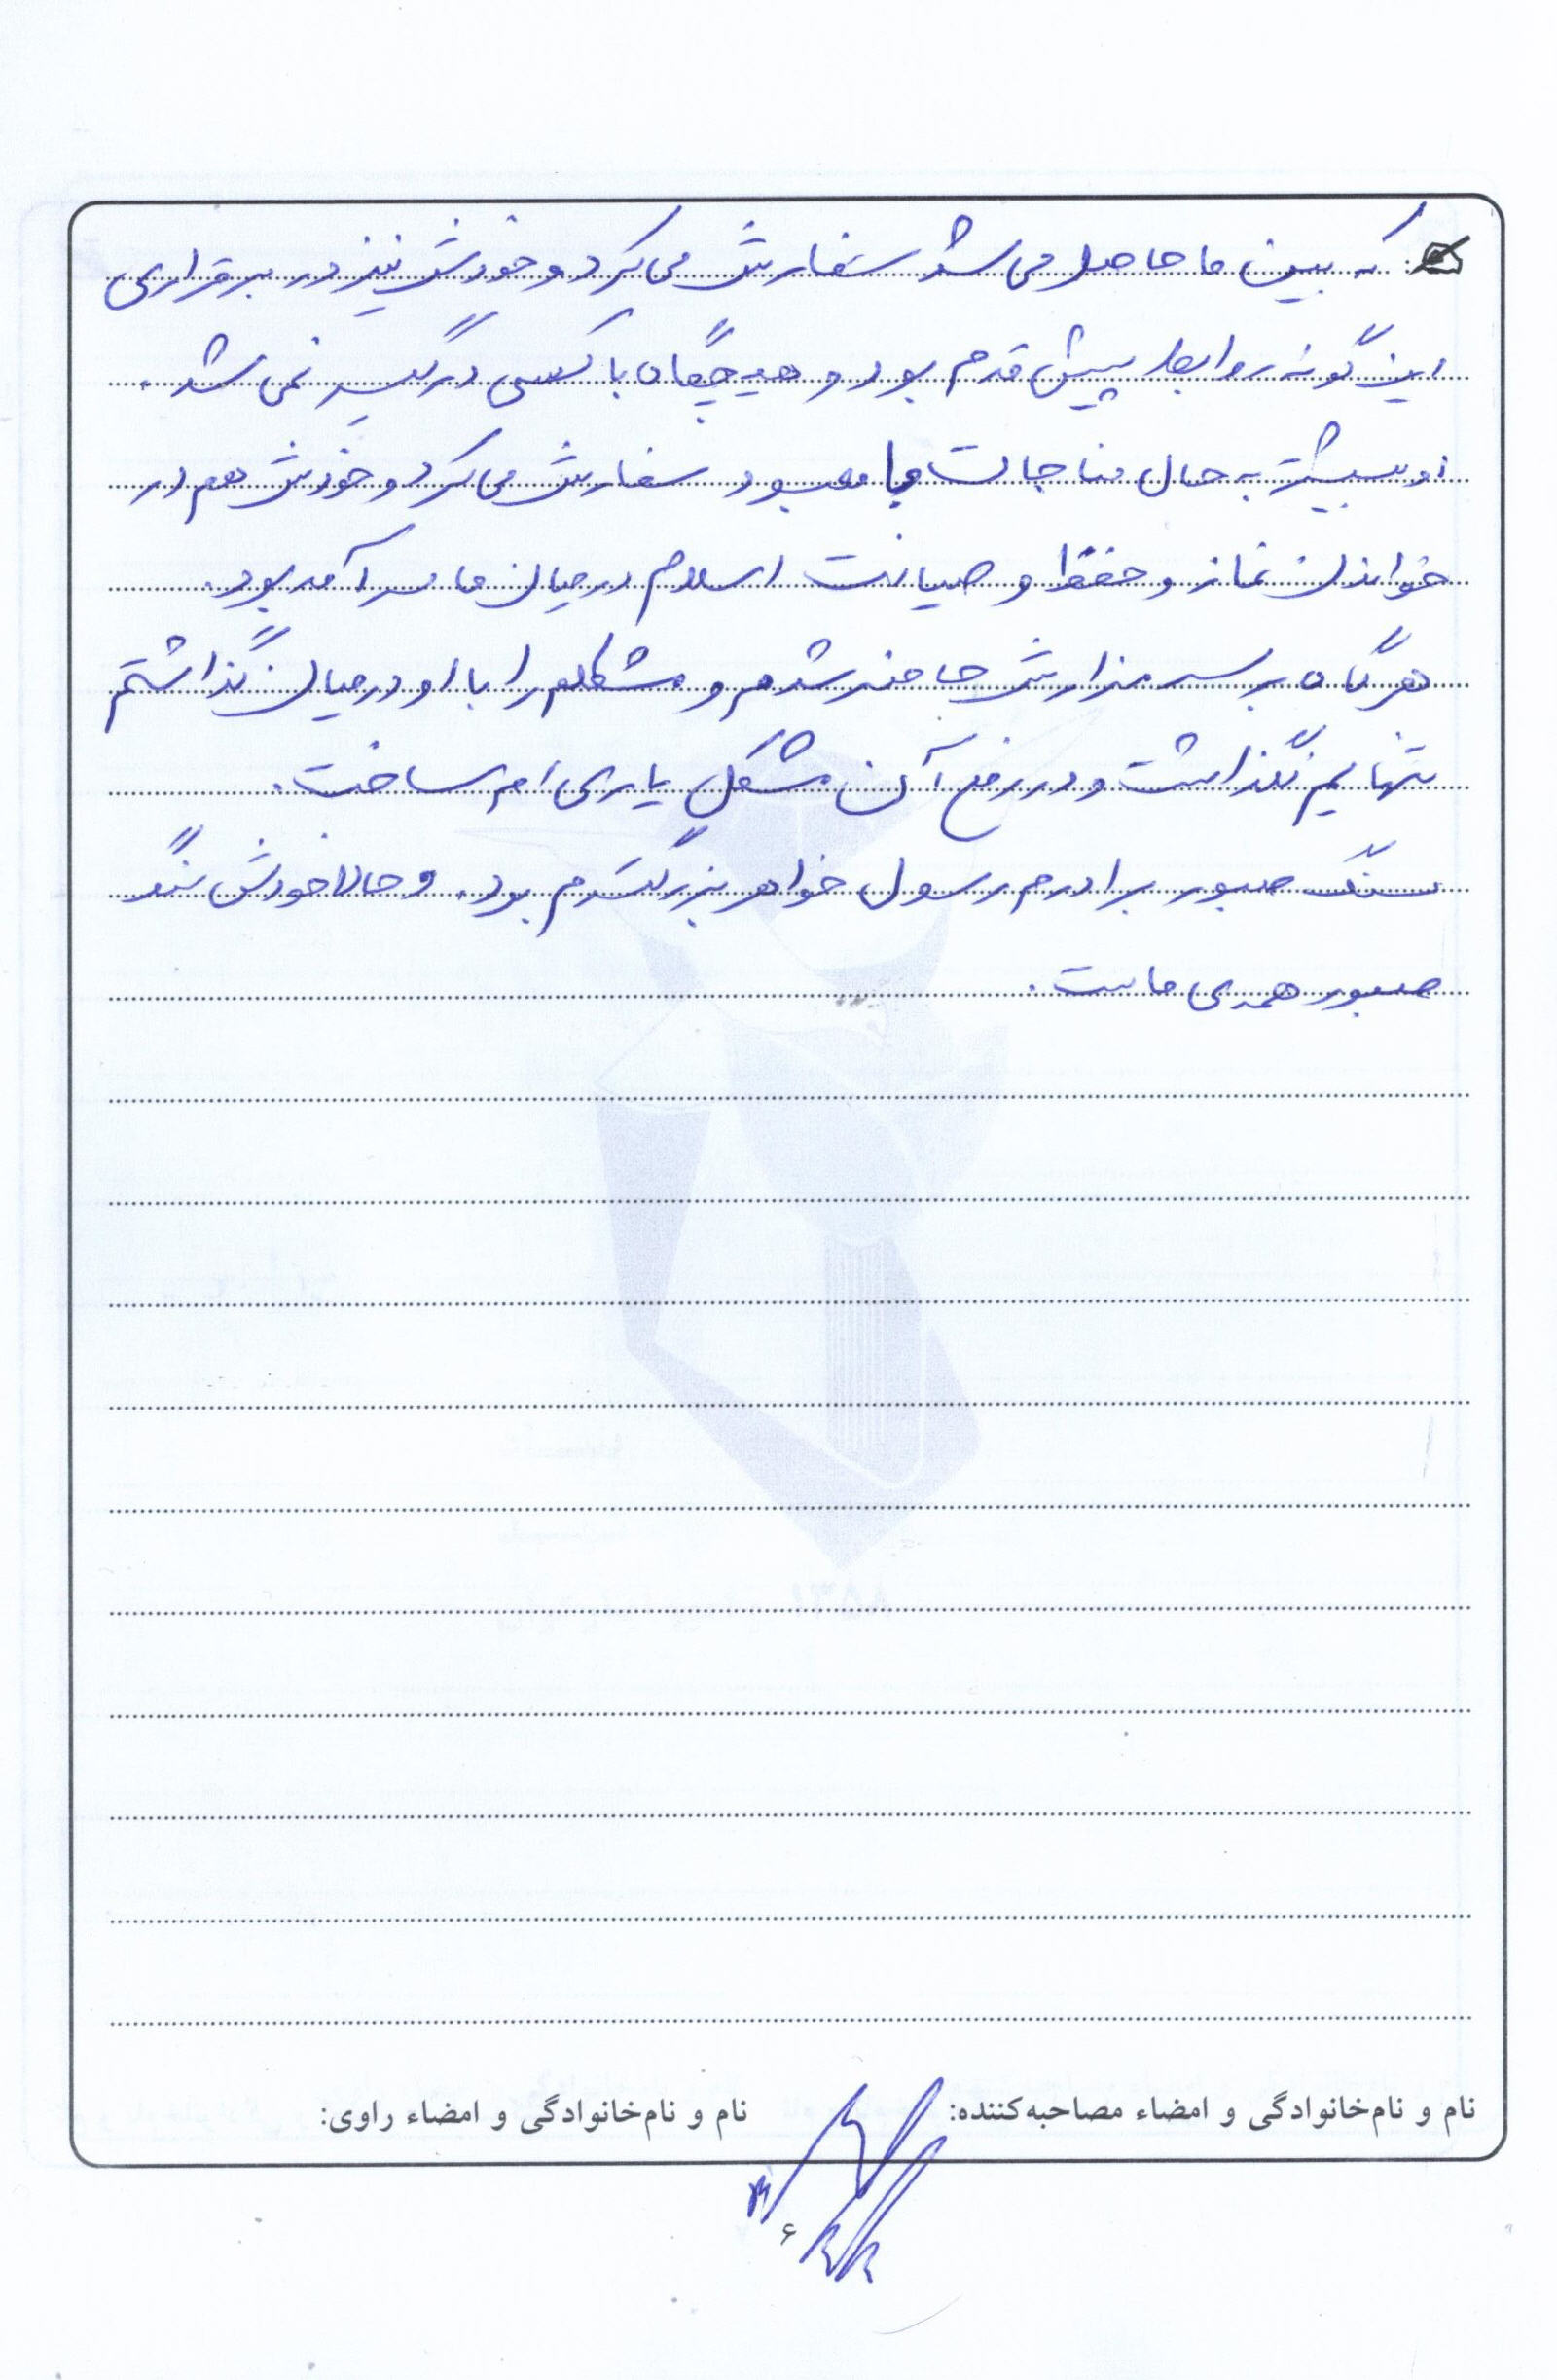 که بین ما حاصل می شد سفارش می کرد و خودش نیز در برقراری
این گونه روابط پیش قدم بود و هیچگاه با کسی درگیر نمی شد.
او بیشتر به حال مناجات با معبود سفارش می کرد و خودش هم در
خواندن نماز و حفظ و صیانت اسلام در میان ما سرآمد بود.
هرگاه بر سر مزارش حاضر شدم و مشکلم را با او در میان گذاشتم
تنهایم نگذاشت و در رفع آن مشکل یاری ام ساخت.
سنگ صبور برادرم رسول خواهر بزرگترم بود. و حالا خودش سنگ
صبور همه ی ماست.
نام و نام‌خانوادگی و امضاء مصاحبه‌کننده: نام و نام‌خانوادگی و امضاء راوی:
۶